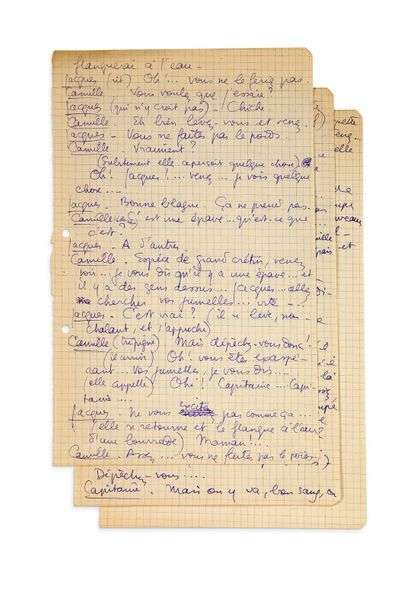 flanquerai à l'eau –
Jacques (rit) Oh!... vous ne le ferez pas.
Camille Vous voulez que j'essaie?
Jacques (qui n'y croit pas) – Chiche
Camille – Eh bien levez-vous et venez
Jacques – Vous ne faites pas le poids
Camille – Vraiment?
(Subitement elle aperçoit quelque chose)
Oh! Jacques!... venez... je vois quelque
chose....
Jacques – Bonne blague. Ça ne prend pas.
Camille C'est une épave... qu'est-ce que
c'est?
Jacques – A d'autres
Camille – Espèce de grand crétin, venez
voir... je vous dis qu'il y a une épave... et
il y a des gens dessus... Jacques... allez
chercher vos jumelles... vite –
Jacques – C'est vrai? (il se lève, non-
chalant, et s'approche)
Camille (trépigne) Mais dépêchez-vous donc!
(il arrive) Oh! vous êtes exaspé-
rant... Vos jumelles, je vous dis...
(elle appelle) Ohé! Capitaine... Capi-
taine....
Jacques – Ne vous excitez pas comme ça...
(elle se retourne et le flanque à l'eau
d'une bourrade) Maman!..
Camille – Assez... vous ne faites pas le poids!
Dépêchez-vous....
Capitaine. Mais on y va, bon sang, on